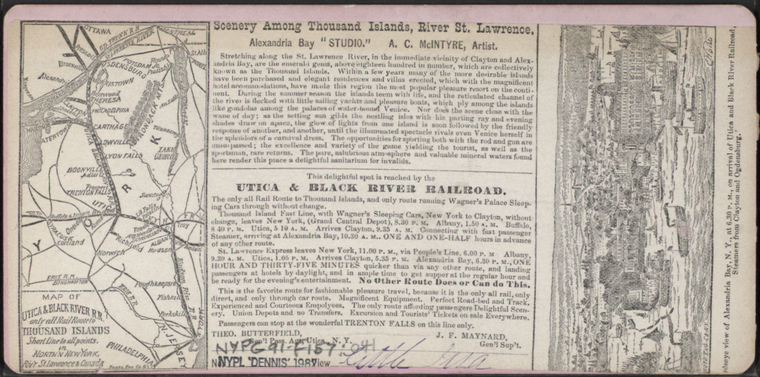 Scenery Among Thousand Islands, River St. Lawrence,
Alexandria Bay "STUDIO." A. C. McINTYRE, Artist.
Stretching along the St. Lawrence River, in the immediate vicinity of Clayton and Alex-
andria Bay, are the emerald group, above eighteen hundred in number, which are collectively
known as the Thousand Islands. Within a few years many of the more desirable islands
have been purchased and elegant residences and villas erected, which with the magnificent
hotel accommodations, have made this region the most popular pleasure resort on the conti-
nent. During the summer season the islands teem with life, and the reticulated channel of
the river is flecked with little sailing yachts and pleasure boats, which ply among the islands
like gondolas among the palaces of water-bound Venice. Nor does the scene close with the
wane of day; as the setting sun gilds the nestling isles with his parting ray and evening
shades draw on apace, the glow of lights from one island is soon followed by the friendly
response of another, and another, until the illuminated spectacle rivals even Venice herself in
the splendors of a carnival dress. The opportunities for sporting both with the rod and gun are
unsurpassed; the excellence and variety of the game yielding the tourist, as well as the
sportsman, rare returns. The pure, salubrious atmosphere and valuable mineral waters found
here render this place a delightful sanitarium for invalids.
This delightful spot is reached by the
UTICA & BLACK RIVER RAILROAD.
The only all Rail Route to Thousand Islands, and only route running Wagner's Palace Sleep-
ing Cars through without change.
Thousand Island Fast Line, with Wagner's Sleeping Cars, New York to Clayton, without
change, leaves New York, (Grand Central Depot), 8.30 P. M. Albany, 1.50 A. M. Buffalo,
8.40 P. M. Utica, 5 10 A. M. Arrives Clayton, 9.35 A. M. Connecting with fast passenger
Steamer, arriving at Alexandria Bay, 10.30 A. M., ONE AND ONE-HALF hours in advance
of any other route.
St. Lawrence Express leaves New York, 11.00 P. M., via People's Line, 6.00 P. M Albany,
9.20 A. M. Utica, 1.05 P. M. Arrives Clayton, 5.35 P. M. Alexandria Bay, 6.30 P. M., ONE
HOUR AND THIRTY-FIVE MINUTES quicker than via any other route, and landing
passengers at hotels by daylight, and in ample time to get supper at the regular hour and
be ready for the evening's entertainment. No Other Route Does or Can do This.
This is the favorite route for fashionable pleasure travel, because it is the only all rail, only
direct, and only through car route. Magnificent Equipment. Perfect Road-bed and Track.
Experienced and Courteous Employees. The only route affording passengers Delightful Scen-
ery. Union Depots and no Transfers. Excursion and Tourists' Tickets on sale Everywhere.
Passengers can stop at the wonderful TRENTON FALLS on this line only.
THEO. BUTTERFIELD, J. F. MAYNARD,
Gen'l Pass. Agt. Utica, N. Y. Gen'l Sup't.
NYPG91-F157
NYPL 'DENNIS' 1987
View
OTTAWA
MONTREAL
OGDENSBURG
THERESA
CARTHAGE
LOWVILLE
LYON FALLS
BOONVILLE
LAKE GEORGE
UTICA
Cortland
PHILADELPHIA
MAP OF
UTICA & BLACK RIVER R.R.
only all Rail Route to
THOUSAND ISLANDS
Short Line to all points.
IN
NORTH'N NEW YORK,
Riv. St. Lawrence & Canada.
Birdseye view of Alexandria Bay, N. Y., at 6.30 P. M., on arrival of Utica and Black River Railroad,
Steamers from Clayton and Ogdensburg.